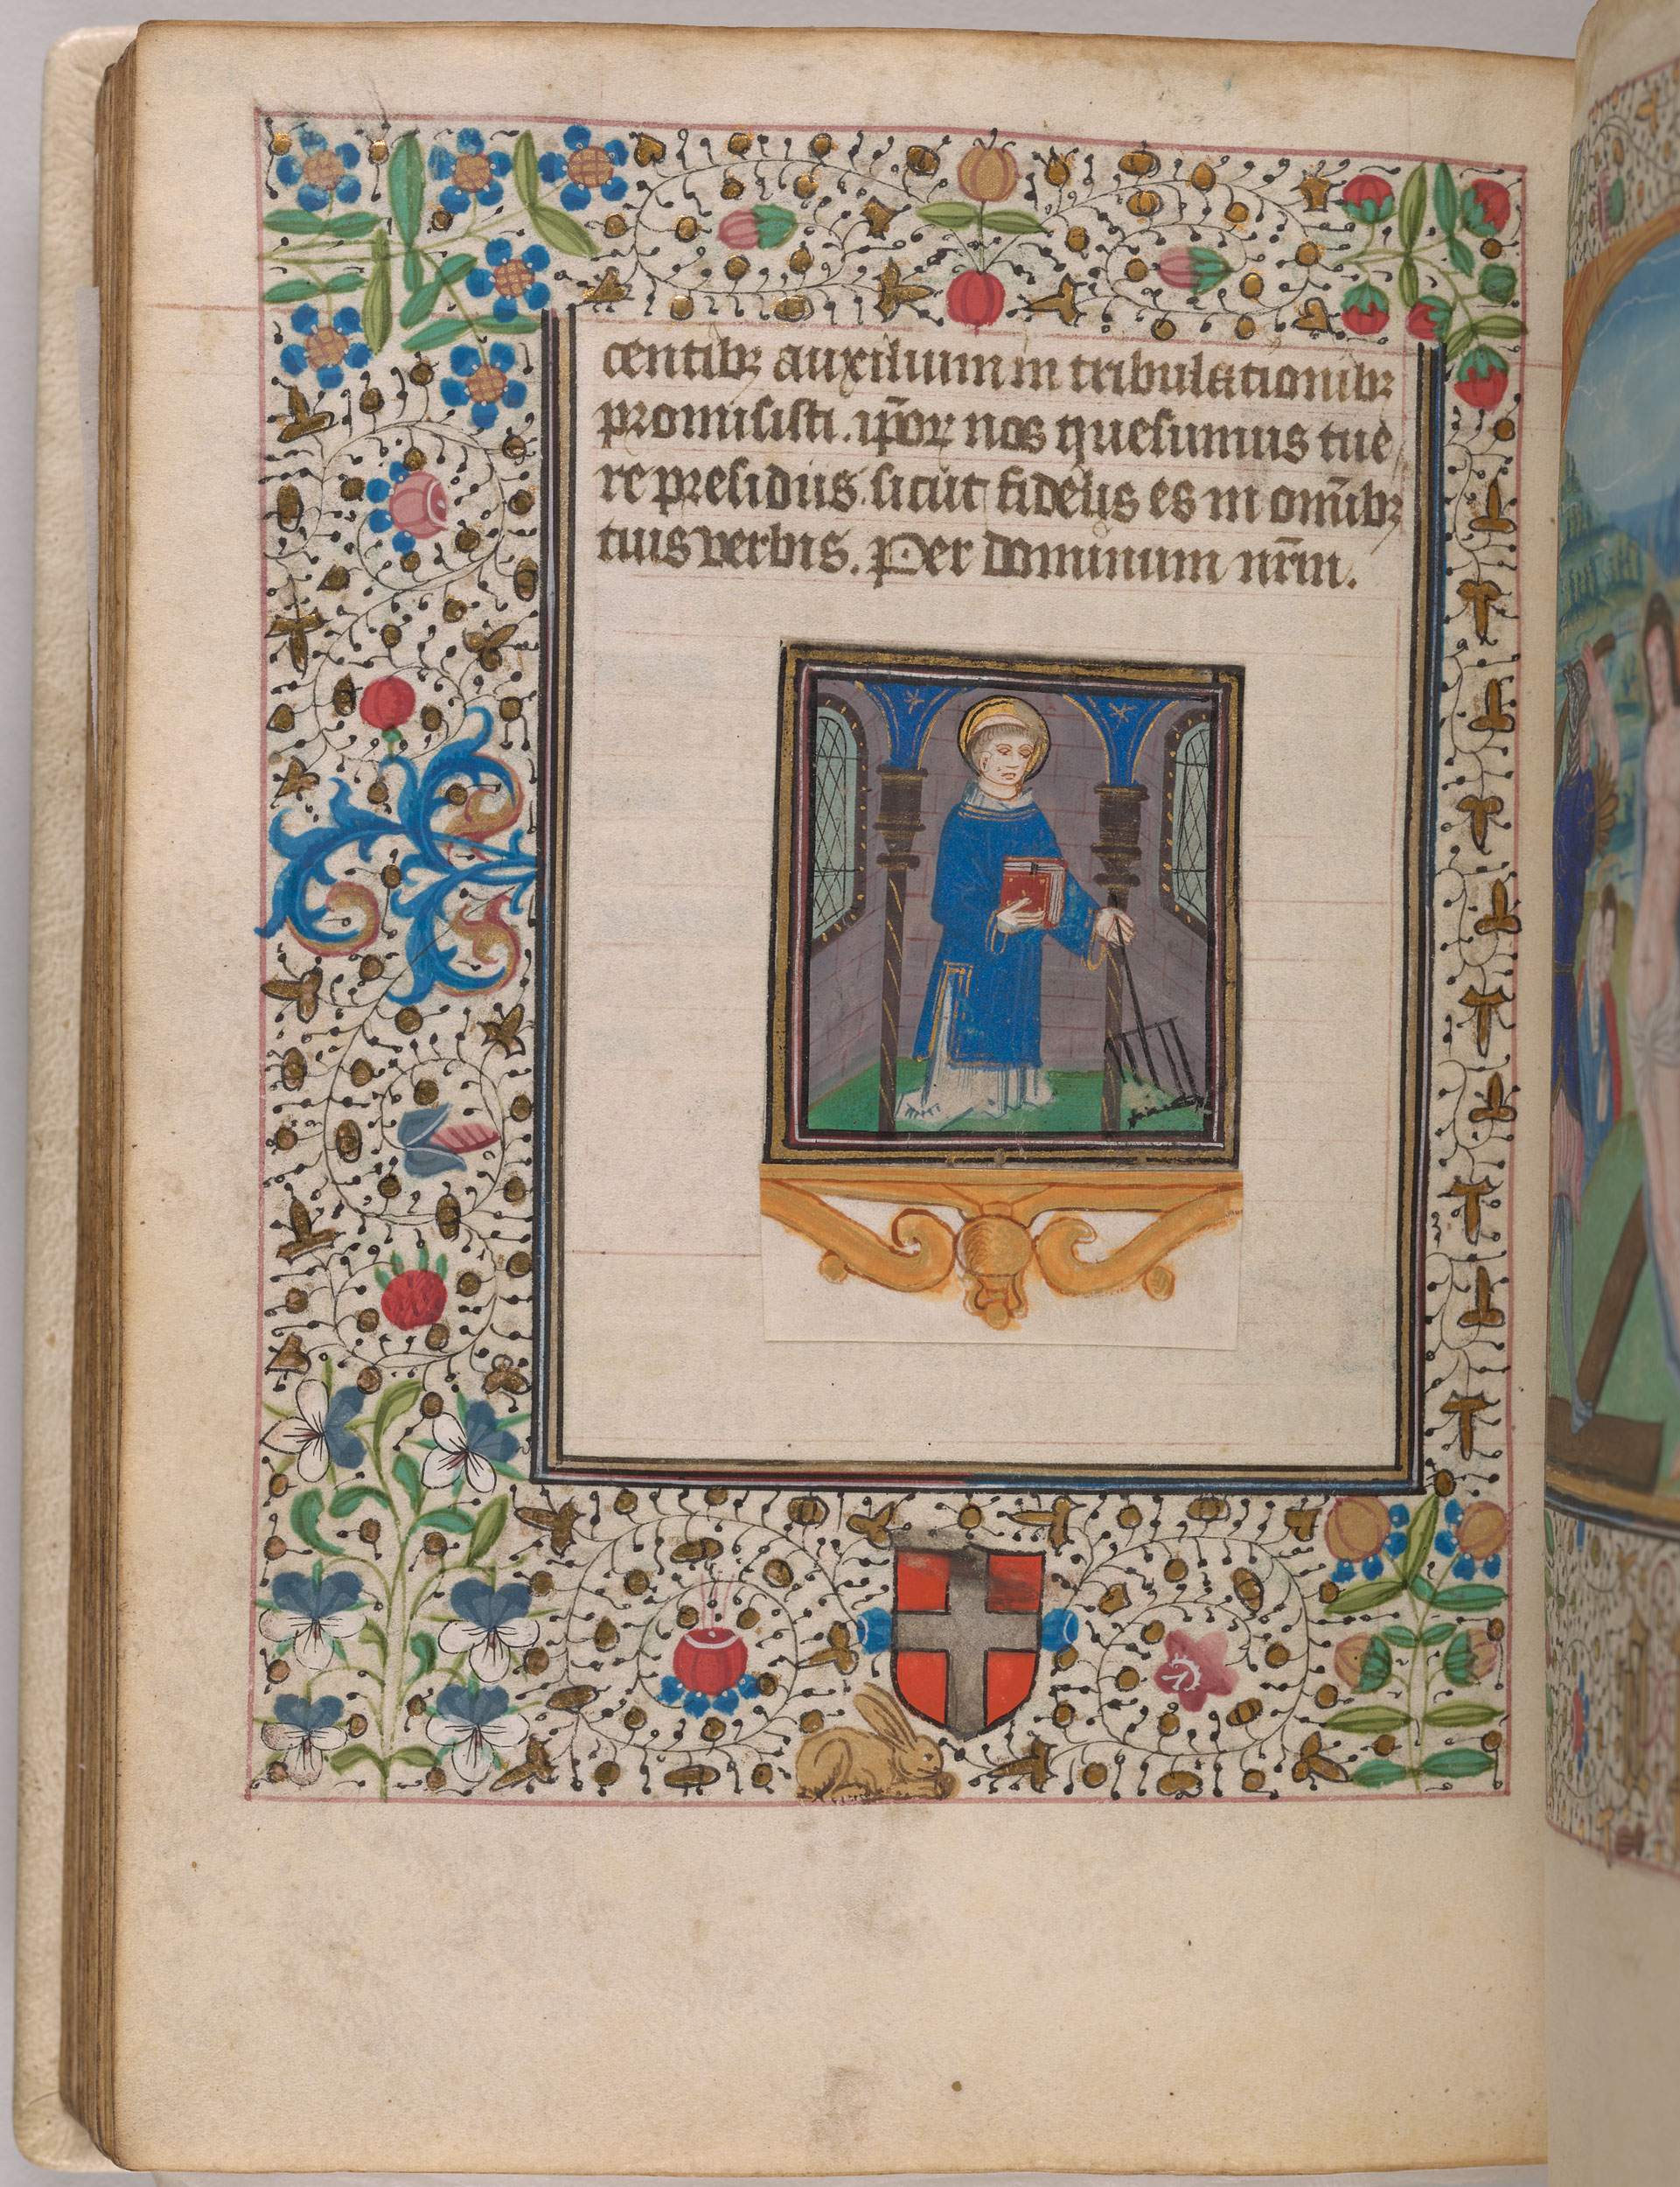 centibꝫ auxilium in tribulationibꝫ
promisisti. ip̄oꝝ nos quesumus tue
re presidiis. sicut fidelis es in om̄ibꝫ
tuis verbis. Per dominum nr̄m.